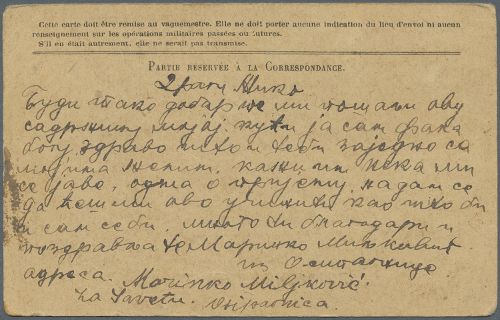 Cette carte doit être remise au vaguemestre. Elle ne doit porter aucune indication du lieu d'envoi ni aucun
renseignement sur les opérations militaires passées ou futures.
S'il en était autrement, elle ne serait pas transmise.
PARTIE RÉSERVÉE À LA CORRESPONDANCE.
Драги Мико
Буди тако добар те ми пошаљи ову
садржину мојој кући ја сам фала
богу здраво
мојима кажи им нека ми
се јаве, надам се
да ћеш ми ово учинити као што би
и сам себи. много ти благодари и
поздравља те Маринко Миљковић
из Осипаонице
адреса. Marinko Miljković
za Osipaonica.